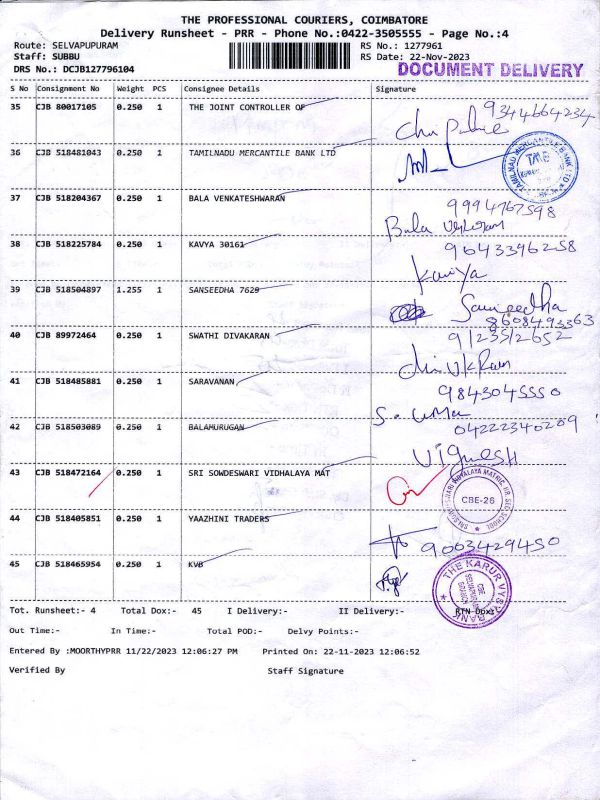 THE PROFESSIONAL COURIERS, COIMBATORE
Delivery Runsheet - PRR - Phone No.:0422-3505555 - Page No.:4
Route: SELVAPUPURAM RS No.: 1277961
Staff: SUBBU RS Date: 22-Nov-2023
DRS No.: DCJB127796104 DOCUMENT DELIVERY
S No Consignment No Weight PCS Consignee Details Signature
35 CJB 80017105 0.250 1 THE JOINT CONTROLLER OF 9344664234
36 CJB 518481043 0.250 1 TAMILNADU MERCANTILE BANK LTD
TAMILNAD MERCANTILE BANK LTD TMB
37 CJB 518204367 0.250 1 BALA VENKATESHWARAN 9994767598
Bala
38 CJB 518225784 0.250 1 KAVYA 30161 9643396258
Kaviya
39 CJB 518504897 1.255 1 SANSEEDHA 7629 Sanseedha
8608493363
40 CJB 89972464 0.250 1 SWATHI DIVAKARAN 9123512652
41 CJB 518485881 0.250 1 SARAVANAN 9843045550
42 CJB 518503089 0.250 1 BALAMURUGAN 04222340209
Vignesh
43 CJB 518472164 0.250 1 SRI SOWDESWARI VIDHALAYA MAT
CBE-26
44 CJB 518405851 0.250 1 YAAZHINI TRADERS 9003429450
45 CJB 518465954 0.250 1 KVB
THE KARUR VYSYA BANK
Tot. Runsheet:- 4 Total Dox:- 45 I Delivery:- II Delivery:- RTN Dox:-
Out Time:- In Time:- Total POD:- Delvy Points:-
Entered By :MOORTHYPRR 11/22/2023 12:06:27 PM Printed On: 22-11-2023 12:06:52
Verified By Staff Signature